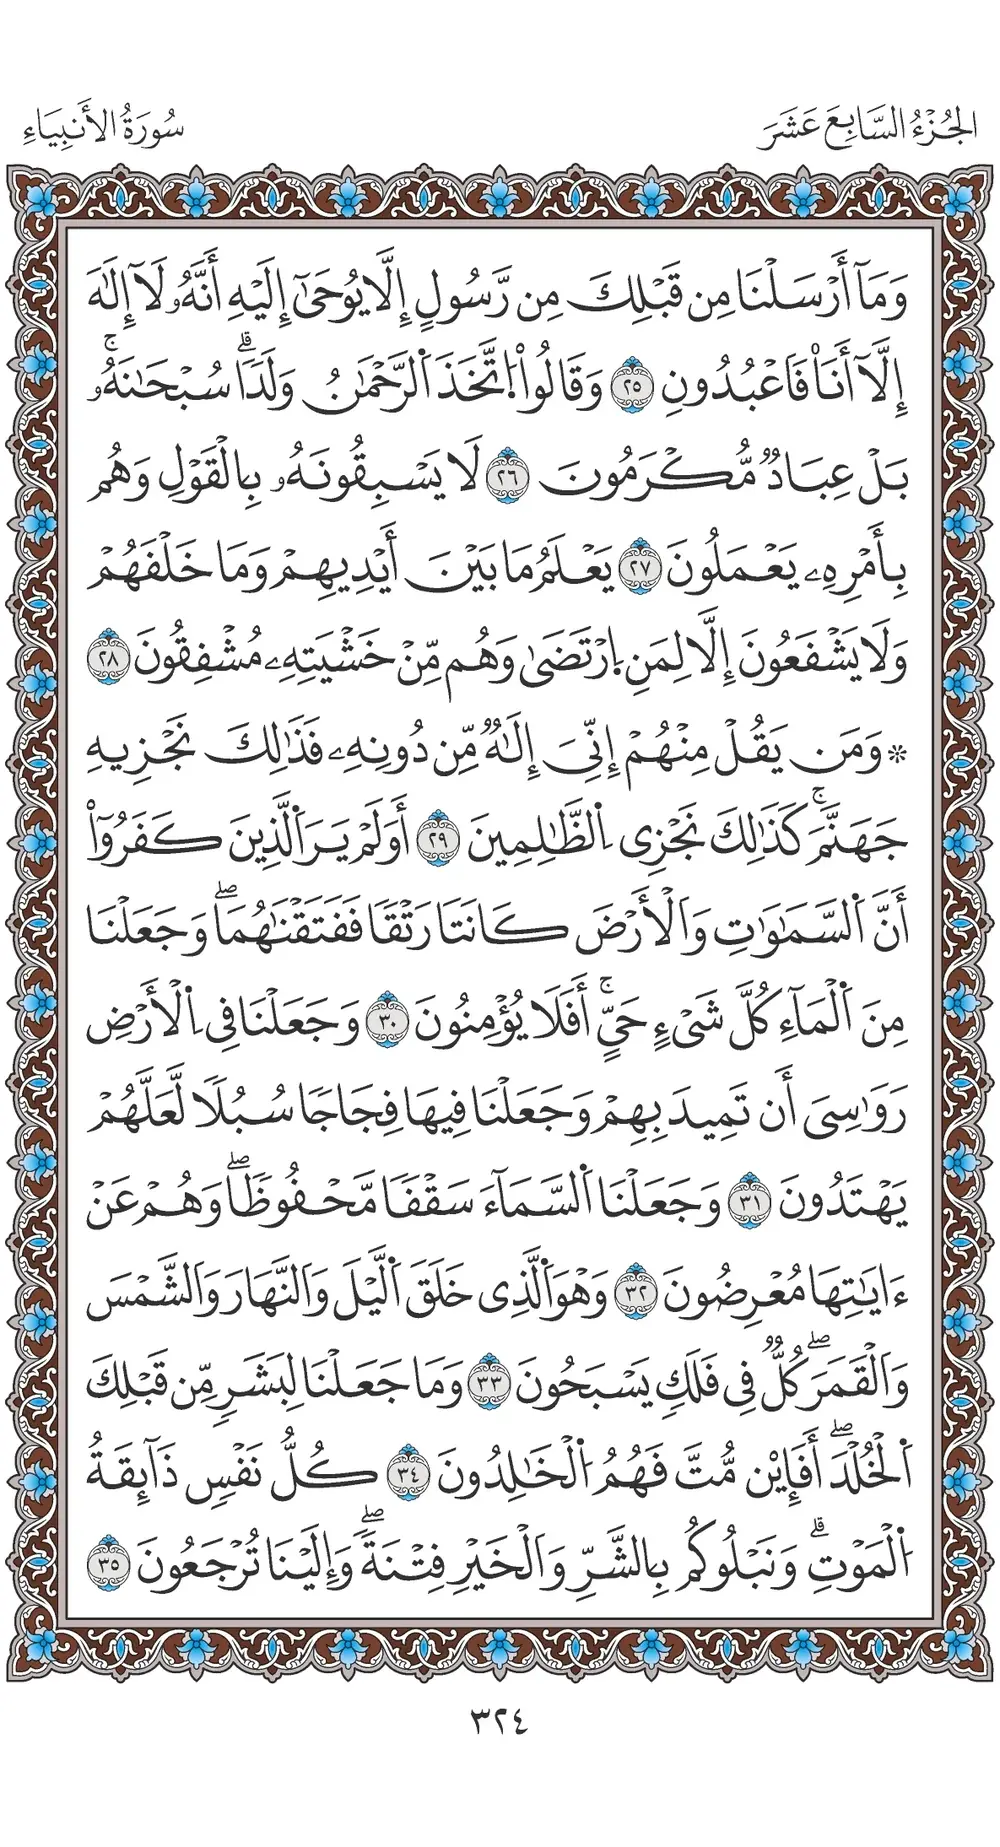 الجُزْءُ السَّابِعَ عَشَرَ
سُورَةُ الأَنبِيَاءِ
وَمَآ أَرْسَلْنَا مِن قَبْلِكَ مِن رَّسُولٍ إِلَّا يُوحَىٰٓ إِلَيْهِ أَنَّهُۥ لَآ إِلَٰهَ
إِلَّآ أَنَا۠ فَاعْبُدُونِ ٢٥ وَقَالُوا۟ اتَّخَذَ اَلرَّحْمَٰنُ وَلَدًاۗ سُبْحَٰنَهُۥۚ
بَلْ عِبَادٌ مُّكْرَمُونَ ٢٦ لَا يَسْبِقُونَهُۥ بِالْقَوْلِ وَهُم
بِأَمْرِهِۦ يَعْمَلُونَ ٢٧ يَعْلَمُ مَا بَيْنَ أَيْدِيهِمْ وَمَا خَلْفَهُمْ
وَلَا يَشْفَعُونَ إِلَّا لِمَنِ اِرْتَضَىٰ وَهُم مِّنْ خَشْيَتِهِۦ مُشْفِقُونَ ٢٨
* وَمَن يَقُلْ مِنْهُمْ إِنِّيَ إِلَٰهٌ مِّن دُونِهِۦ فَذَٰلِكَ نَجْزِيهِ
جَهَنَّمَۚ كَذَٰلِكَ نَجْزِى اِلظَّٰلِمِينَ ٢٩ أَوَلَمْ يَرَ اَلَّذِينَ كَفَرُوٓا۟
أَنَّ اَلسَّمَٰوَٰتِ وَالْأَرْضَ كَانَتَا رَتْقًا فَفَتَقْنَٰهُمَاۖ وَجَعَلْنَا
مِنَ اَلْمَآءِ كُلَّ شَىْءٍ حَيٍّۚ أَفَلَا يُؤْمِنُونَ ٣٠ وَجَعَلْنَا فِى اِلْأَرْضِ
رَوَٰسِىَ أَن تَمِيدَ بِهِمْ وَجَعَلْنَا فِيهَا فِجَاجًا سُبُلًا لَّعَلَّهُمْ
يَهْتَدُونَ ٣١ وَجَعَلْنَا اَلسَّمَآءَ سَقْفًا مَّحْفُوظًاۖ وَهُمْ عَنْ
ءَايَٰتِهَا مُعْرِضُونَ ٣٢ وَهْوَ اَلَّذِى خَلَقَ اَلَّيْلَ وَالنَّهَارَ وَالشَّمْسَ
وَالْقَمَرَۖ كُلٌّ فِى فَلَكٍ يَسْبَحُونَ ٣٣ وَمَا جَعَلْنَا لِبَشَرٍ مِّن قَبْلِكَ
اَلْخُلْدَۖ أَفَإِي۟ن مُّتَّ فَهُمُ اُلْخَٰلِدُونَ ٣٤ كُلُّ نَفْسٍ ذَآئِقَةُ
اُلْمَوْتِۗ وَنَبْلُوكُم بِالشَّرِّ وَالْخَيْرِ فِتْنَةًۖ وَإِلَيْنَا تُرْجَعُونَ ٣٥
٣٢٤